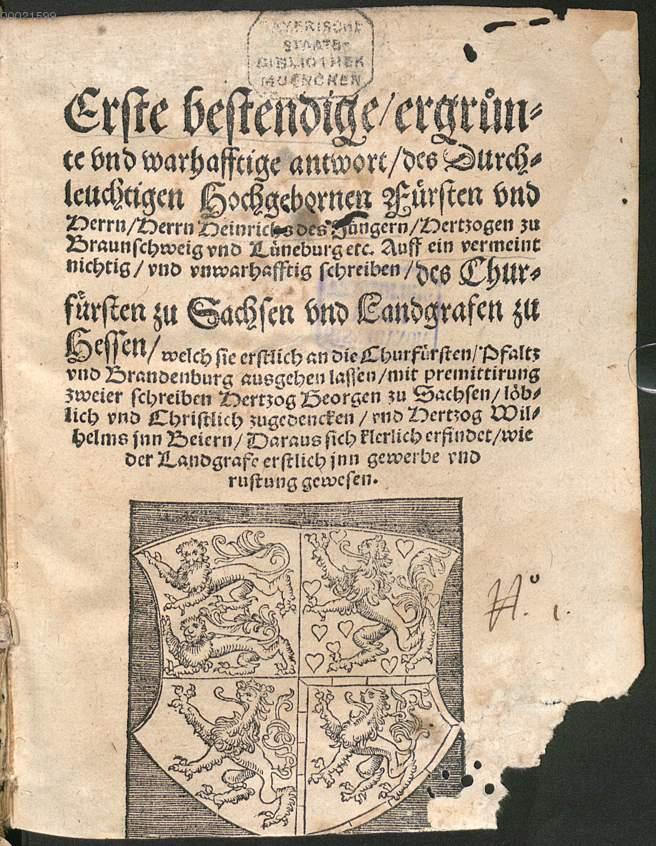 00021599
BAYERISCHE
STAATS-
BIBLIOTHEK
MUENCHEN
Erste bestendige/ergrün-
te vnd warhafftige antwort/des Durch-
leuchtigen Hochgebornen Fürsten vnd
Herrn/Herrn Heinrichs des Jüngern/Hertzogen zu
Braunschweig vnd Lüneburg etc. Auff ein vermeint
nichtig/vnd vnwarhafftig schreiben/des Chur-
fürsten zu Sachsen vnd Landgrafen zu
Hessen/welch sie erstlich an die Churfürsten/Pfaltz
vnd Brandenburg ausgehen lassen/mit premittirung
zweier schreiben Hertzog Georgen zu Sachsen/löb-
lich vnd Christlich zugedencken/vnd Hertzog Wil-
helms jnn Beiern/Daraus sich klerlich erfindet/wie
der Landgrafe erstlich jnn gewerbe vnd
rustung gewesen.
H. 1.